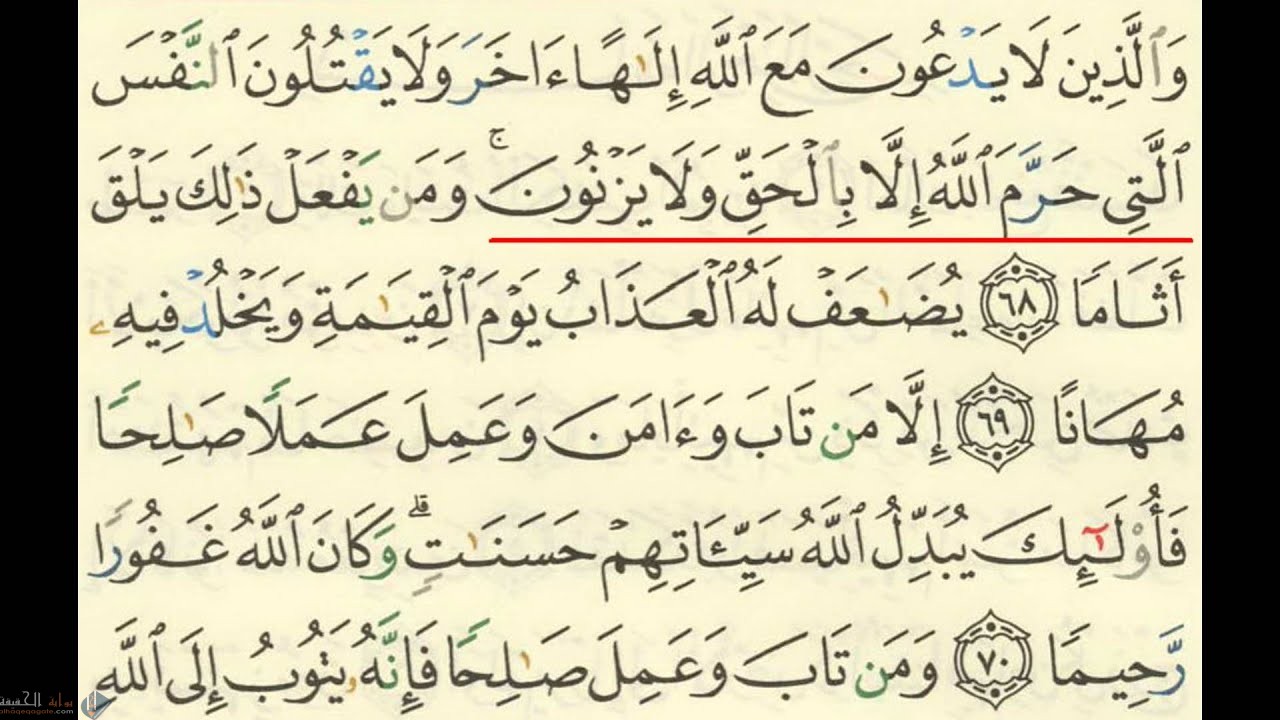 وَٱلَّذِينَ لَا يَدۡعُونَ مَعَ ٱللَّهِ إِلَٰهًا ءَاخَرَ وَلَا يَقۡتُلُونَ ٱلنَّفۡسَ
ٱلَّتِي حَرَّمَ ٱللَّهُ إِلَّا بِٱلۡحَقِّ وَلَا يَزۡنُونَۚ وَمَن يَفۡعَلۡ ذَٰلِكَ يَلۡقَ
أَثَامٗا ٦٨ يُضَٰعَفۡ لَهُ ٱلۡعَذَابُ يَوۡمَ ٱلۡقِيَٰمَةِ وَيَخۡلُدۡ فِيهِۦ
مُهَانًا ٦٩ إِلَّا مَن تَابَ وَءَامَنَ وَعَمِلَ عَمَلٗا صَٰلِحٗا
فَأُوْلَٰٓئِكَ يُبَدِّلُ ٱللَّهُ سَيِّـَٔاتِهِمۡ حَسَنَٰتٖۗ وَكَانَ ٱللَّهُ غَفُورٗا
رَّحِيمٗا ٧٠ وَمَن تَابَ وَعَمِلَ صَٰلِحٗا فَإِنَّهُۥ يَتُوبُ إِلَى ٱللَّهِ
بوابة الحقيقة
alhaqeqagate.com